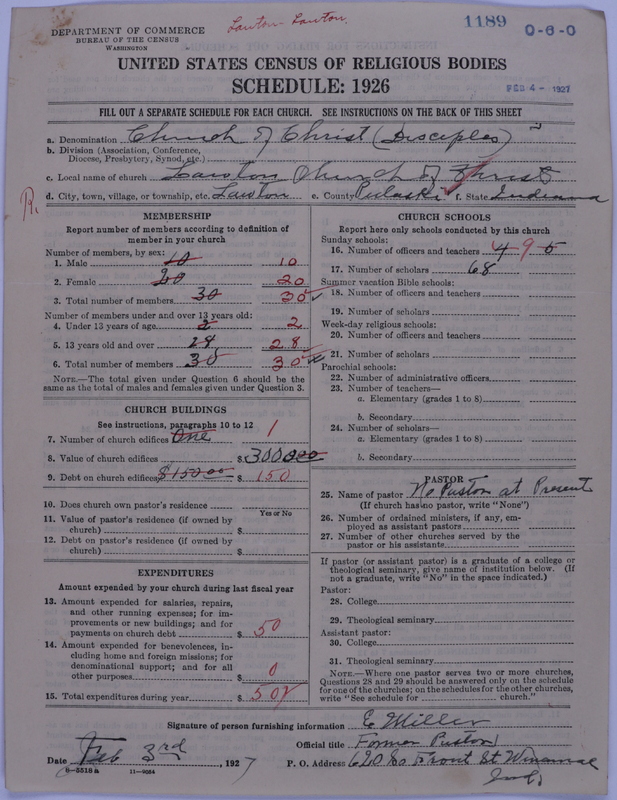 DEPARTMENT OF COMMERCE
BUREAU OF THE CENSUS
WASHINGTON
Lawton Lawton.
1189
0-6-0
UNITED STATES CENSUS OF RELIGIOUS BODIES
SCHEDULE: 1926
FEB 4 - 1927
FILL OUT A SEPARATE SCHEDULE FOR EACH CHURCH. SEE INSTRUCTIONS ON THE BACK OF THIS SHEET
a. Denomination Church of Christ (Disciples)
b. Division (Association, Conference,
Diocese, Presbytery, Synod, etc.)
c. Local name of church Lawton Church of Christ
d. City, town, village, or township, etc. Lawton e. County Pulaski f. State Indiana
R.
MEMBERSHIP
Report number of members according to definition of
member in your church
Number of members, by sex:
1. Male 10 10
2. Female 20 20
3. Total number of members 30 30
Number of members under and over 13 years old:
4. Under 13 years of age 2 2
5. 13 years old and over 28 28
6. Total number of members 30 30
NOTE.—The total given under Question 6 should be
the same as the total of males and females given under Question 3.
CHURCH BUILDINGS
See instructions, paragraphs 10 to 12
7. Number of church edifices One 1
8. Value of church edifices $ 30000
9. Debt on church edifices $150.00 $ 150
10. Does church own pastor's residence
Yes or No
11. Value of pastor's residence (if owned by
church) $
12. Debt on pastor's residence (if owned by
church) $
EXPENDITURES
Amount expended by your church during last fiscal year
13. Amount expended for salaries, repairs,
and other running expenses; for im-
provements or new buildings; and for
payments on church debt $ 50
14. Amount expended for benevolences, in-
cluding home and foreign missions; for
denominational support; and for all
other purposes $ 0
15. Total expenditures during year $ 50
CHURCH SCHOOLS
Report here only schools conducted by this church
Sunday schools:
16. Number of officers and teachers 4 9 5
17. Number of scholars 68
Summer vacation Bible schools:
18. Number of officers and teachers
19. Number of scholars
Week-day religious schools:
20. Number of officers and teachers
21. Number of scholars
Parochial schools:
22. Number of administrative officers
23. Number of teachers—
a. Elementary (grades 1 to 8)
b. Secondary
24. Number of scholars—
a. Elementary (grades 1 to 8)
b. Secondary
PASTOR
25. Name of pastor No Pastor at Present
(If church has no pastor, write "None")
26. Number of ordained ministers, if any, em-
ployed as assistant pastors
27. Number of other churches served by the
pastor or his assistants
If pastor (or assistant pastor) is a graduate of a college or
theological seminary, give name of institution below. (If
not a graduate, write "No" in the space indicated.)
Pastor:
28. College
29. Theological seminary
Assistant pastor:
30. College
31. Theological seminary
NOTE.—Where one pastor serves two or more churches,
Questions 28 and 29 should be answered only on the schedule
for one of the churches; on the schedules for the other churches,
write "See schedule for church."
Signature of person furnishing information E Miller
Official title Former Pastor
Date Feb 3rd, 1927 P. O. Address 620 So Front St Winamac
Ind.
8-5518a 11-9064